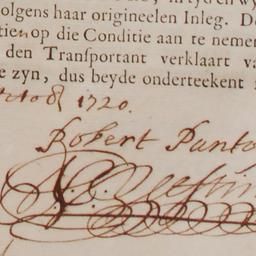 olgens haar origineelen Inleg. De
tien op die Conditie aan te nemen
den Transportant verklaart va
e zyn, dus beyde onderteekent
octob 1720.
Robert Panto